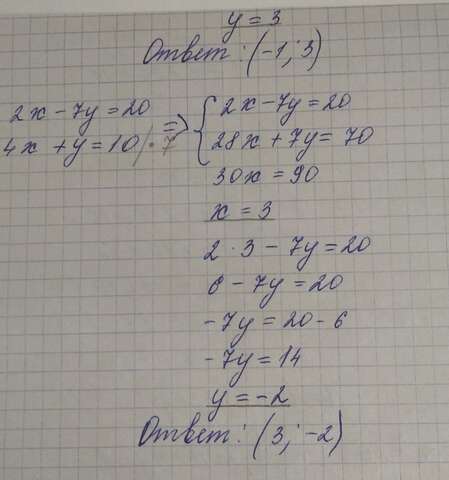 y = 3
Ответ: (-1; 3)
2x - 7y = 20
4x + y = 10 | · 7
=> { 2x - 7y = 20
28x + 7y = 70
30x = 90
x = 3
2 · 3 - 7y = 20
6 - 7y = 20
-7y = 20 - 6
-7y = 14
y = -2
Ответ: (3; -2)